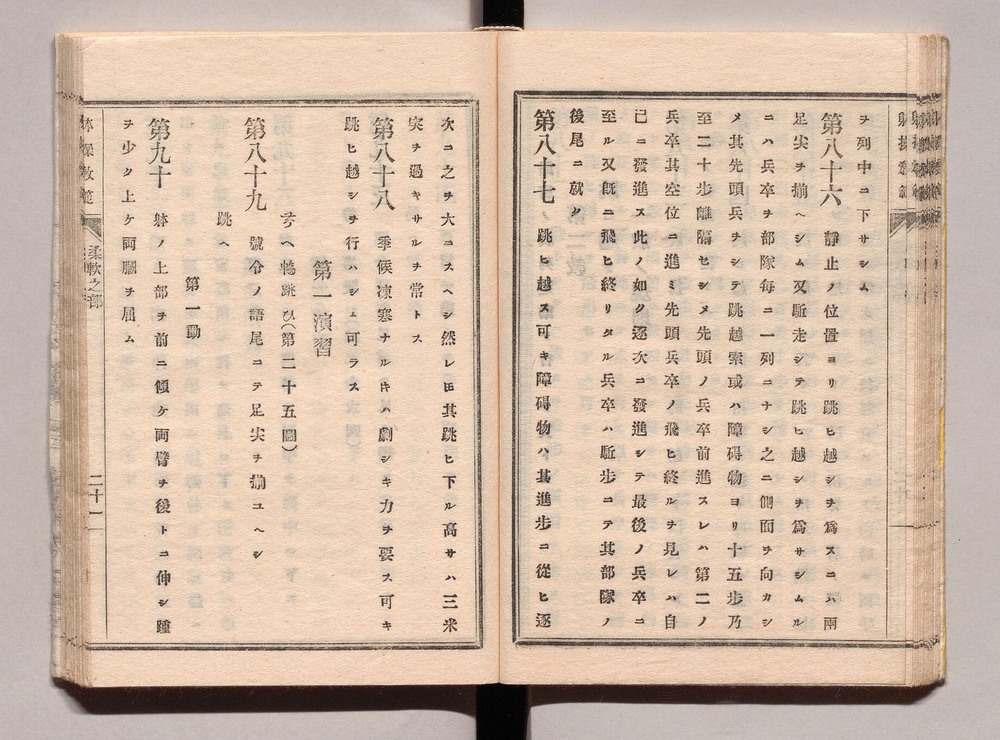 ヲ列中ニ下サシム
第八十六　靜止ノ位置ヨリ跳ヒ越シヲ爲スニハ兩
足尖ヲ揃ヘシム又駈走シテ跳ヒ越シヲ爲サシムル
ニハ兵卒ヲ部隊每ニ一列ニナシ之ニ側面ヲ向カシ
メ其先頭兵ヲシテ跳越索或ハ障碍物ヨリ十五歩乃
至二十歩離隔セシメ先頭ノ兵卒前進スレハ第二ノ
兵卒其空位ニ進ミ先頭兵卒ノ飛ヒ終ルヲ見レハ自
己ニ發進ス此ノ如ク逐次ニ發進シテ最後ノ兵卒ニ
至ル又旣ニ飛ヒ終リタル兵卒ハ駈歩ニテ其部隊ノ
後尾ニ就ク
第八十七　跳ヒ越ス可キ障碍物ハ其進歩ニ從ヒ逐
次ニ之ヲ大ニスヘシ然レ𪜈其跳ヒ下ル高サハ三米
突ヲ過キサルヲ常トス
第八十八　季候凍寒ナルキハ劇シキ力ヲ要ス可キ
跳ヒ越シヲ行ハシム可ラス
第一演習
幅跳ひ(第二十五圖)
第八十九　號令ノ語尾ニテ足尖ヲ揃ユヘシ
跳ヘ
第一動
第九十　躰ノ上部ヲ前ニ傾ケ兩臂ヲ後トニ伸シ踵
ヲ少ク上ケ兩膕ヲ屈ム
体操敎範
柔軟之部
二十一